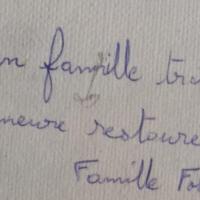 n famille tr
neure restoure
Famille Fo